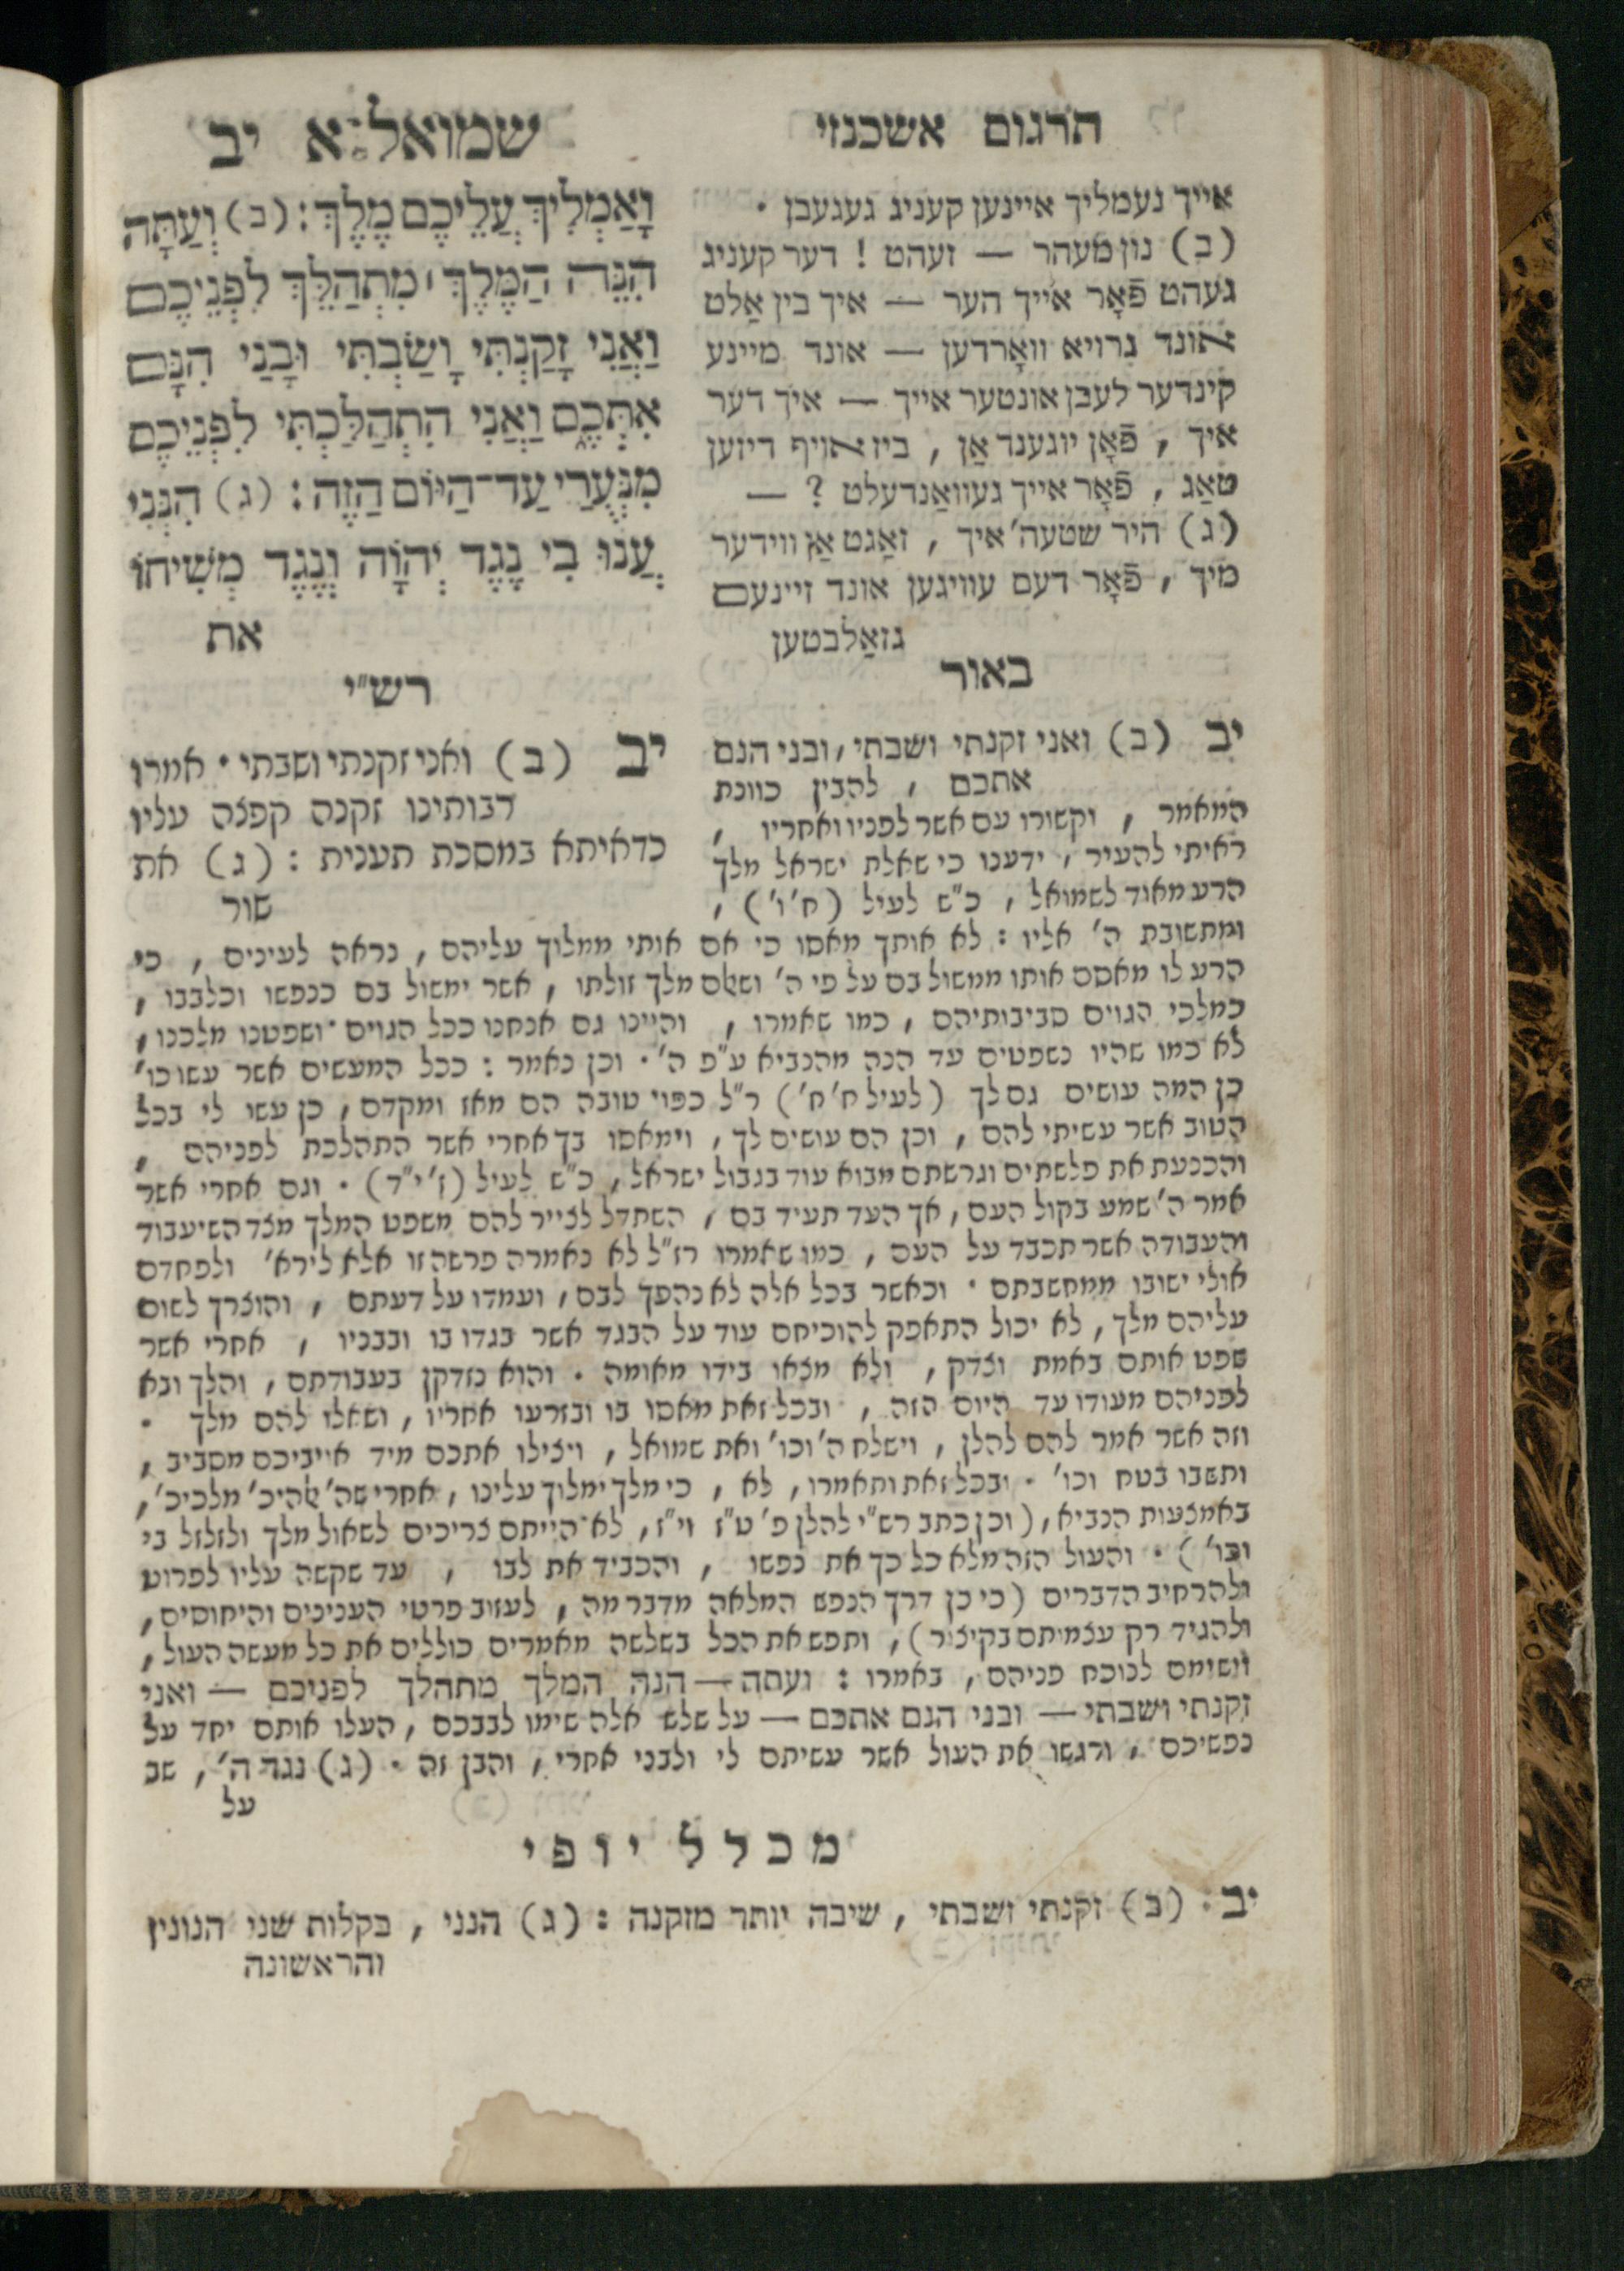 תרגום אשכנזי
שמואל א יב
אייך נעמליך איינען קעניג געגעבן .
(ב) נון מעהר — זעהט ! דער קעניג
געהט פֿאָר אייך הער — איך בין אַלט
אונד גרויא וואָרדען — אונד מיינע
קינדער לעבן אונטער אייך — איך דער
איך , פֿאָן יוגענד אַן , ביז אויף דיזען
טאַג , פֿאָר אייך געוואַנדעלט ? —
(ג) היר שטעה' איך , זאַגט אַן ווידער
מיך , פֿאָר דעם עוויגען אונד זיינעם
גזאַלבטען
וָאַמְלִיךְ עֲלֵיכֶם מֶלֶךְ : (ב) וְעַתָּה
הִנֵּה הַמֶּלֶךְ ׀ מִתְהַלֵּךְ לִפְנֵיכֶם
וַאֲנִי זָקַנְתִּי וָשַׂבְתִּי וּבָנַי הִנָּם
אִתְּכֶם וַאֲנִי הִתְהַלַּכְתִּי לִפְנֵיכֶם
מִנְּעֻרַי עַד־הַיּוֹם הַזֶּה : (ג) הִנְנִי
עֲנוּ בִי נֶגֶד יְהוָֹה וְנֶגֶד מְשִׁיחוֹ
את
באור
יב (ב) ואני זקנתי ושבתי , ובני הנם
אתכם , להבין כוונת
המאמר , וקשורו עם אשר לפניו ואחריו ,
ראיתי להעיר , ידענו כי שאלת ישראל מלך
הרע מאוד לשמואל , כ"ש לעיל (ח' ו') ,
רש"י
יב (ב) ואני זקנתי ושבתי . אמרו
רבותינו זקנה קפצה עליו
כדאיתא במסכת תענית : (ג) את
שור
ומתשובת ה' אליו : לא אותך מאסו כי אם אותי ממלוך עליהם , נראה לעינים , כי
הרע לו מאסם אותו ממשול בם על פי ה' ושאלם מלך זולתו , אשר ימשול בם כנפשו וכלבבו ,
כמלכי הגוים סביבותיהם , כמו שאמרו , והיינו גם אנחנו ככל הגוים ושפטנו מלכנו ,
לא כמו שהיו נשפטים עד הנה מהנביא ע"פ ה' . וכן נאמר : ככל המעשים אשר עשו כו'
כן המה עושים גם לך (לעיל ח' ח') ר"ל כפויי טובה הם מאז ומקדם , כן עשו לי בכל
הטוב אשר עשיתי להם , וכן הם עושים לך , וימאסו בך אחרי אשר התהלכת לפניהם ,
והכנעת את פלשתים וגרשתם מבוא עוד בגבול ישראל , כ"ש לעיל (ז' י"ד) . וגם אחרי אשר
אמר ה' שמע בקול העם , אך העד תעיד בם , השתדל לצייר להם משפט המלך מצד השיעבוד
והעבודה אשר תכבד על העם , כמו שאמרו רז"ל לא נאמרה פרשה זו אלא לירא' ולפחדם
אולי ישובו ממחשבתם . וכאשר בכל אלה לא נהפך לבם , ועמדו על דעתם , והוצרך לשום
עליהם מלך , לא יכול התאפק להוכיחם עוד על הבגד אשר בגדו בו ובבניו , אחרי אשר
שפט אותם באמת וצדק , ולא מצאו בידו מאומה . והוא נזדקן בעבודתם , והלך ובא
לפניהם מעודו עד היום הזה , ובכל זאת מאסו בו ובזרעו אחריו , ושאלו להם מלך .
וזה אשר אמר להם להלן , וישלח ה' וכו' ואת שמואל , ויצילו אתכם מיד אייביכם מסביב ,
ותשבו בטח וכו' . ובכל זאת ותאמרו , לא , כי מלך ימלוך עלינו , אחרי שה' אלהיכ' מלכיכ' ,
באמצעות הנביא , (וכן כתב רש"י להלן פ' ט"ז וי"ז , לא הייתם צריכים לשאול מלך ולזלזל בי
וכו') . והעול הזה מלא כל כך את נפשו , והכביד את לבו , עד שקשה עליו לפרוט
ולהרחיב הדברים (כי כן דרך הנפש המלאה מדבר מה , לעזוב פרטי הענינים והיחוסים ,
ולהגיד רק עצמיתם בקיצור) , ותפש את הכל בשלשה מאמרים כוללים את כל מעשה העול ,
וישימם לנוכח פניהם , באמרו : ועתה — הנה המלך מתהלך לפניכם — ואני
זקנתי ושבתי — ובני הנם אתכם — על שלש אלה שימו לבבכם , העלו אותם יחד על
נפשיכם , ורגשו את העול אשר עשיתם לי ולבני אחרי , והבן זה . (ג) נגד ה' , שב
על
מכלל יופי
יב (ב) זקנתי ושבתי , שיבה יותר מזקנה : (ג) הנני , בקלות שני הנונין
והראשונה